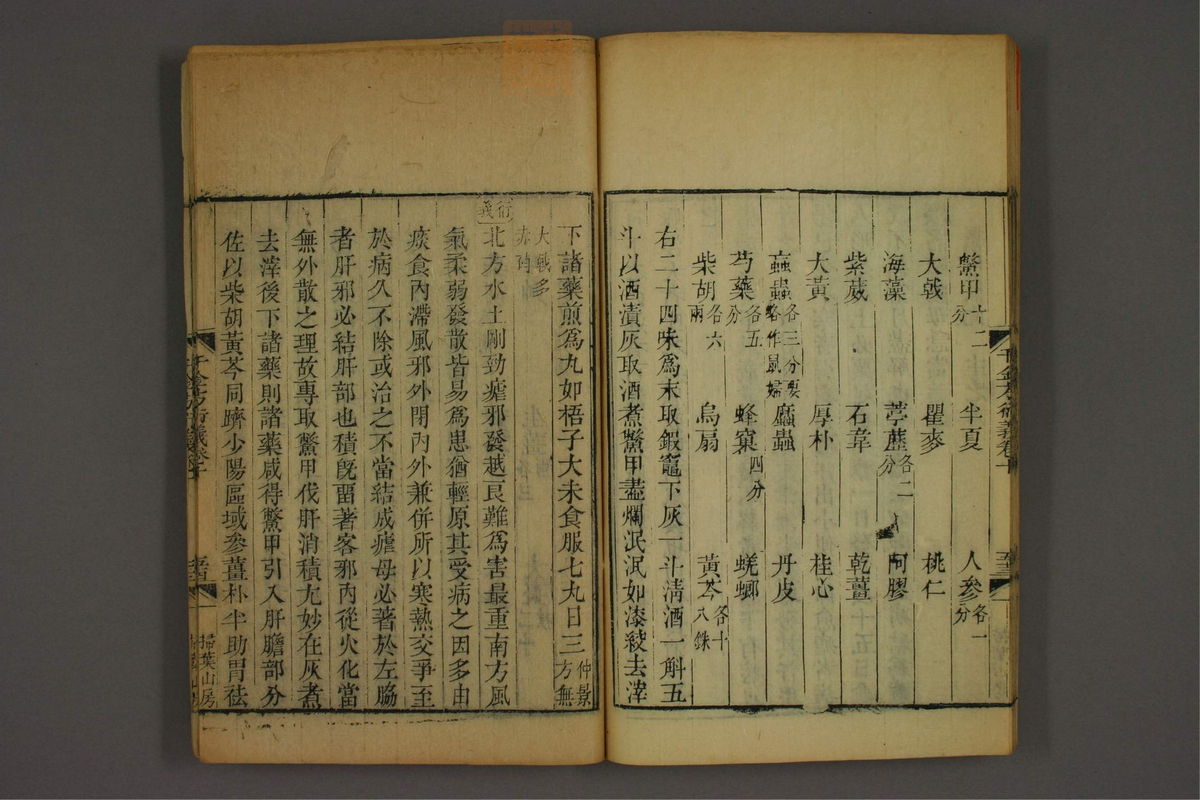 鱉甲十二分 半夏 人參各一分
大戟 瞿麥 桃仁
海藻 葶藶各二分 阿膠
紫葳 石韋 乾薑
大黃 厚朴 桂心
䗪蟲各三分要畧作鼠婦 蟲 丹皮
芍藥各五分 蜂窠四分 蜣螂
柴胡各六兩 烏扇 黃芩各十八銖
右二十四味爲末取鍜竈下灰一斗淸酒一斛五
斗以酒漬灰取酒煮鱉甲盡爛泯泯如漆絞去滓
千金方衍義卷十
下諸藥煎爲丸如梧子大未食服七丸日三仲景方無
大戟多赤硝
衍義
北方水土剛勁瘧邪發越艮難爲害最重南方風
氣柔弱發散皆易爲患猶輕原其受病之因多由
痰食內滯風邪外閉內外兼併所以寒熱交爭至
於病久不除或治之不當結成瘧母必著於左脇
者肝邪必結肝部也積旣畱著客邪內從火化當
無外散之理故專取鱉甲伐肝消積尢妙在灰煮
去滓後下諸藥則諸藥咸得鱉甲引入肝膽部分
佐以柴胡黃芩同躋少陽區域參薑朴半助胃祛
千金方衍義卷十
掃葉山房